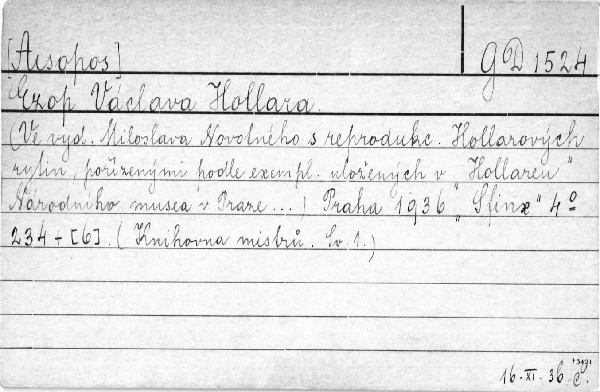 [Aesopos] G D 1524
Ezop Václava Hollara.
(Ve vyd. Miloslava Novotného s reprodukc. Hollarových
rytin, pořízenými podle exempl. uložených v "Hollareu"
Národního musea v Praze ...) Praha 1936 "Sfinx" 4º
234 + [6]. (Knihovna mistrů. Sv. 1.)
16. XI. 36